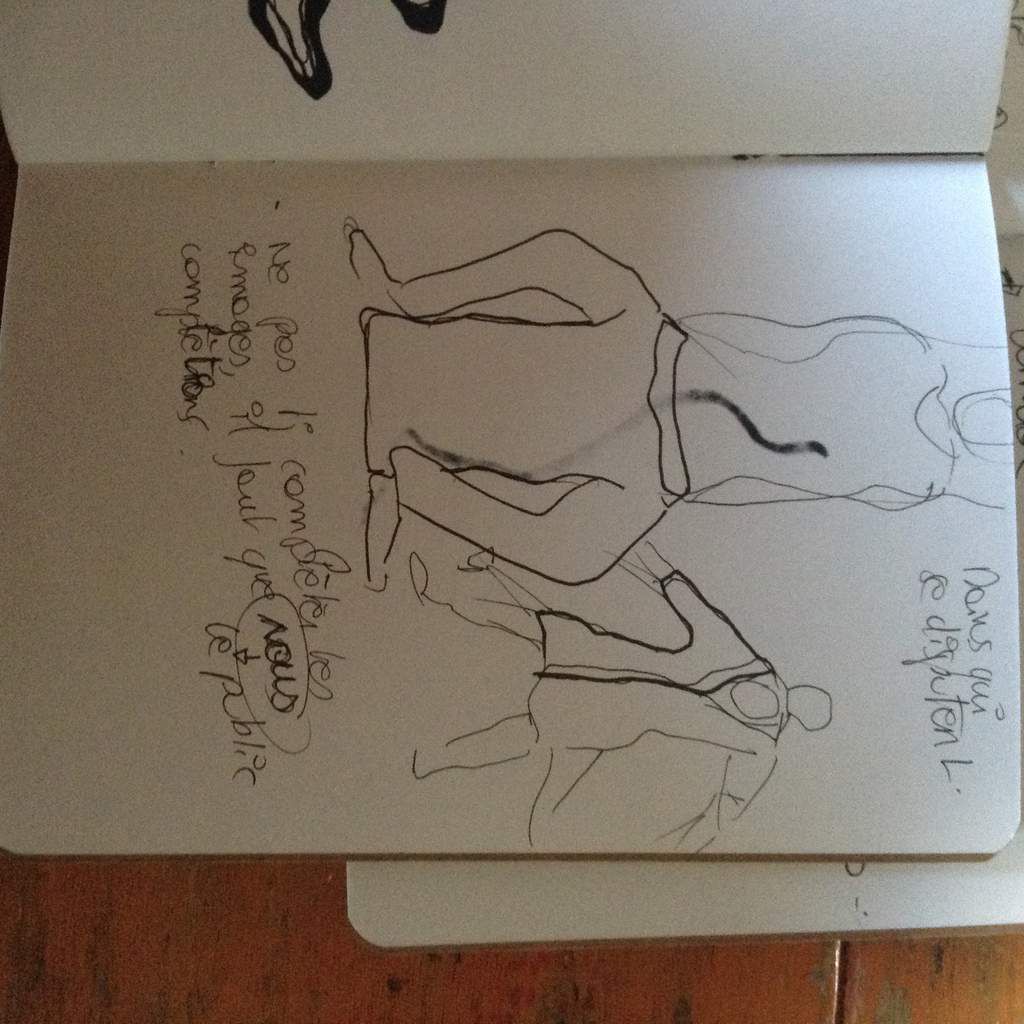 Nains qui
se disputent.
- Ne pas compléter les
images, il faut que nous
complétions. le public